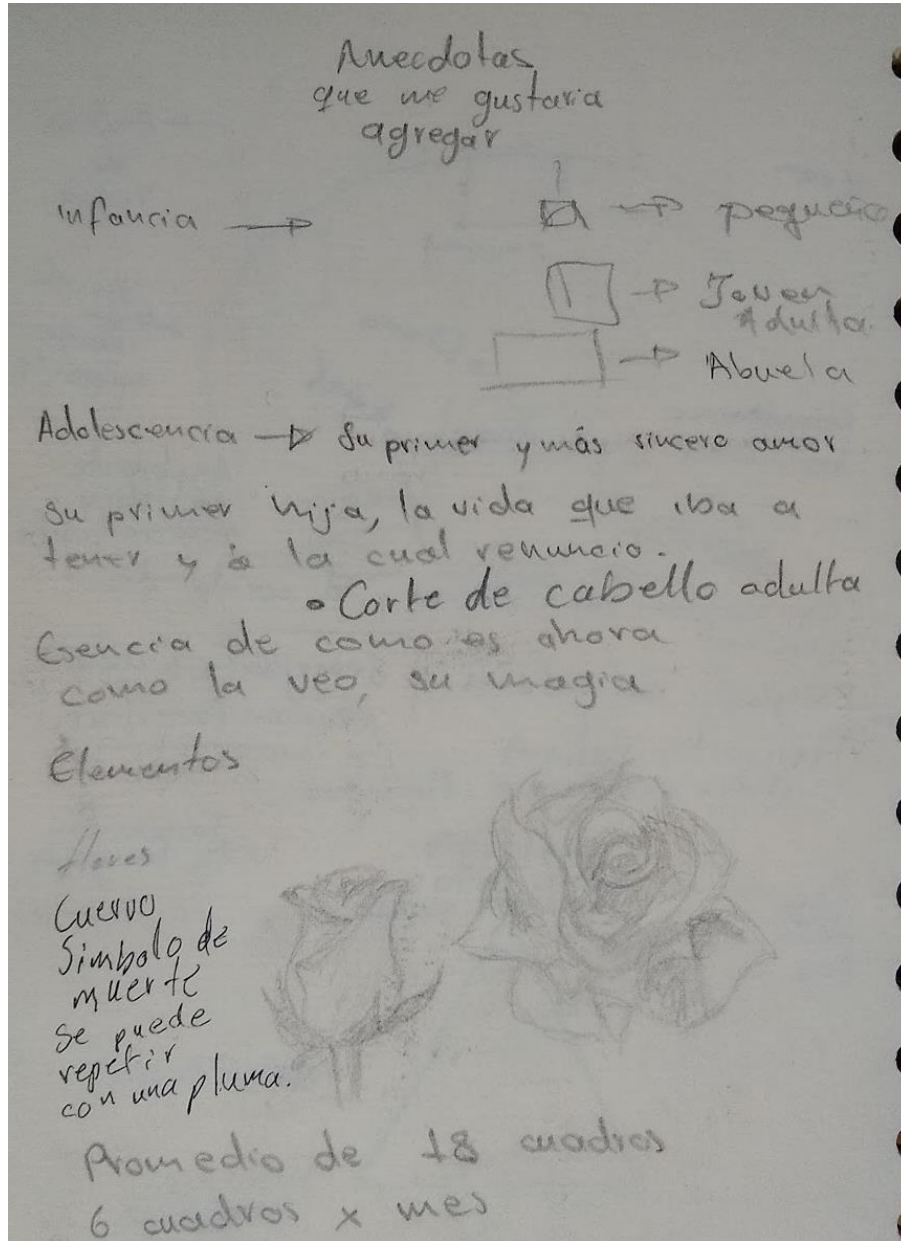 Anecdotas
que me gustaria
agregar
infancia
pequeño
Joven
Adulta
Abuela
Adolescencia su primer y más sincero amor
su primer hija, la vida que iba a
tener y a la cual renuncio.
• Corte de cabello adulta
Esencia de como es ahora
como la veo, su magia
Elementos
flores
Cuervo
Simbolo de
muerte
se puede
repetir
con una pluma.
Promedio de 18 cuadros
6 cuadros x mes